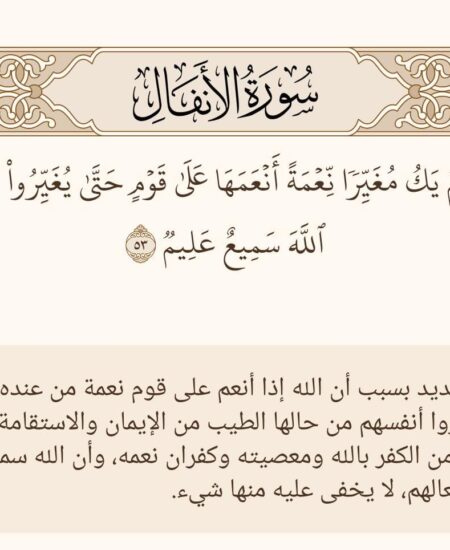 سُورَةُ الأَنفَالِ
يَكُ مُغَيِّرٗا نِّعۡمَةً أَنۡعَمَهَا عَلَىٰ قَوۡمٍ حَتَّىٰ يُغَيِّرُواْ
ٱللَّهَ سَمِيعٌ عَلِيمٞ ٥٣
ديد بسبب أن الله إذا أنعم على قوم نعمة من عنده
روا أنفسهم من حالها الطيب من الإيمان والاستقامة
من الكفر بالله ومعصيته وكفران نعمه، وأن الله سم
عالهم، لا يخفى عليه منها شيء.